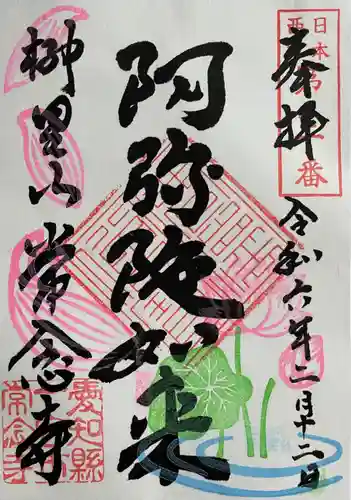 奉拝
日本
西
番
令和六年二月十二日
阿弥陀如来
柳里山
常念寺
愛知縣
常念寺